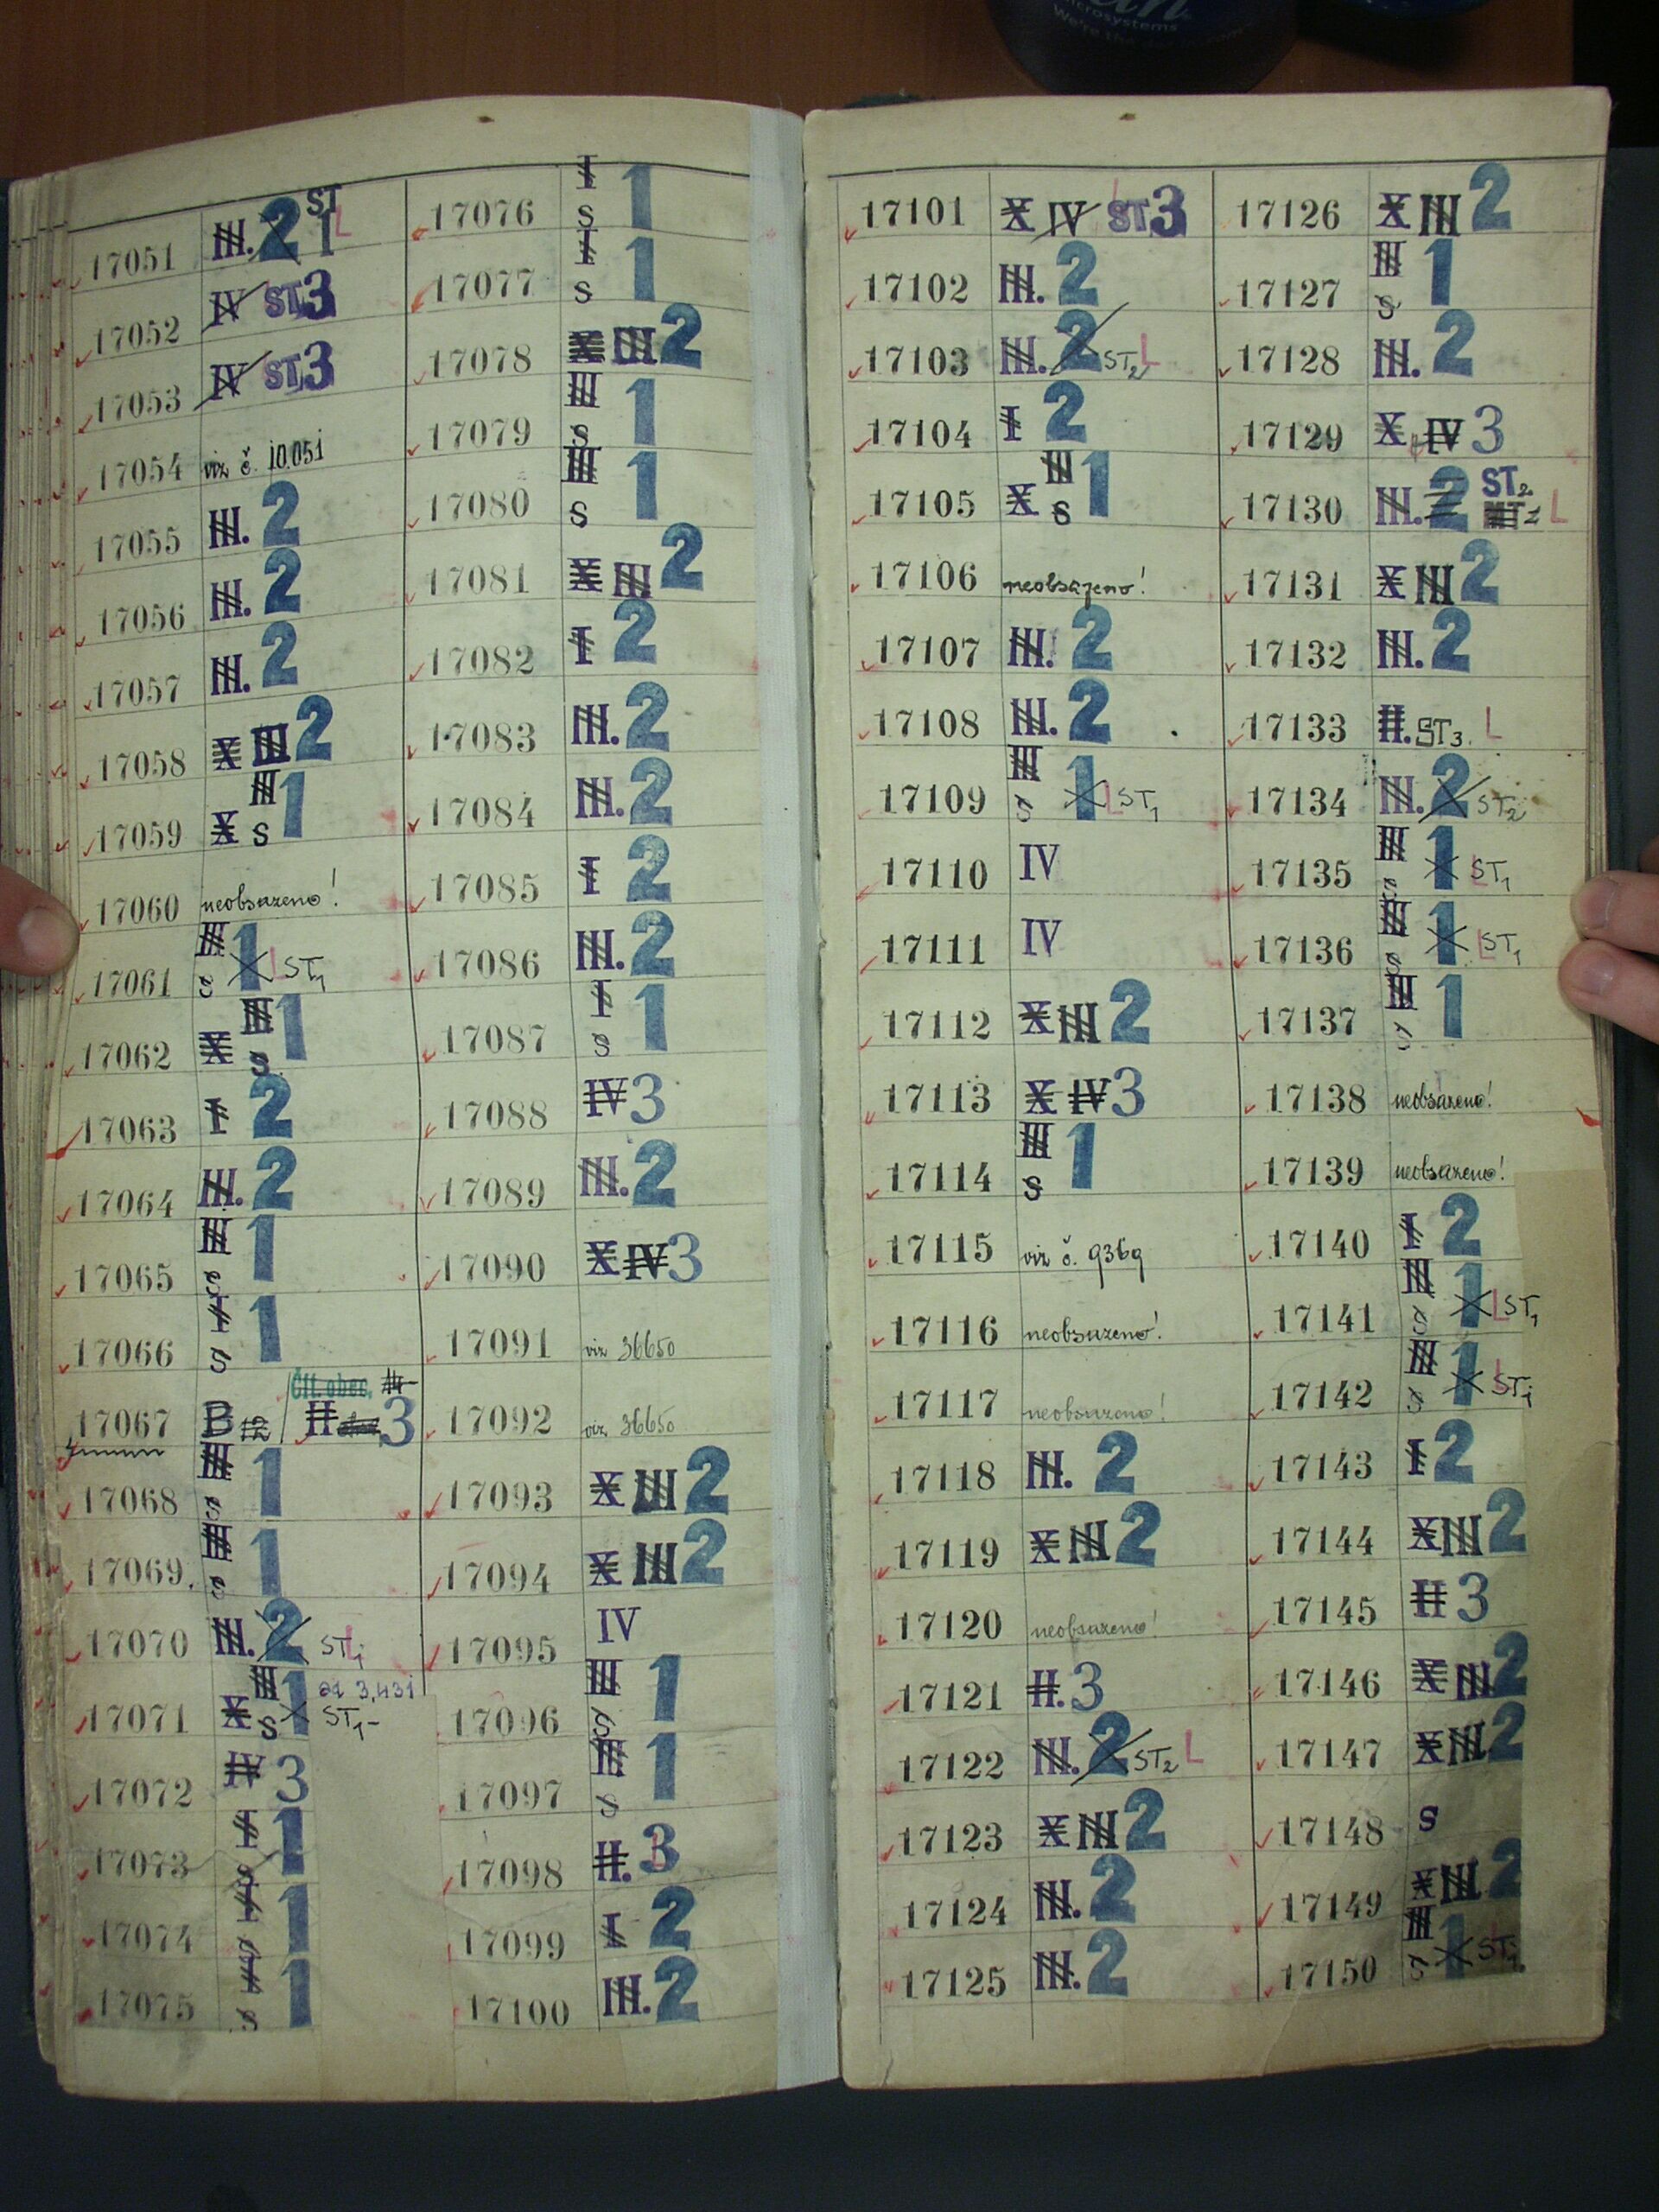 microsystems
17051 III. 2 ST 1 L
17052 IV ST 3
17053 IV ST 3
17054 viz č. 10.051
17055 III. 2
17056 III. 2
17057 III. 2
17058 X III 2
17059 X III S 1
17060 neobsazeno!
17061 III S 1 L ST1
17062 X III S 1
17063 I 2
17064 III. 2
17065 III S 1
17066 I S 1
17067 B II 3
17068 III S 1
17069 III S 1
17070 III. 2 ST1 L
17071 X III S 1 ST1
17072 IV 3
17073 I S 1
17074 I S 1
17075 I S 1
17076 I S 1
17077 I S 1
17078 X III 2
17079 III S 1
17080 III S 1
17081 X III 2
17082 I 2
17083 III. 2
17084 III. 2
17085 I 2
17086 III. 2
17087 I S 1
17088 IV 3
17089 III. 2
17090 X IV 3
17091 viz 36650
17092 viz 36650
17093 X III 2
17094 X III 2
17095 IV
17096 III S 1
17097 III S 1
17098 II. 3
17099 I 2
17100 III. 2
17101 X IV ST 3
17102 III. 2
17103 III. 2 ST2 L
17104 I 2
17105 X III S 1
17106 neobsazeno!
17107 III. 2
17108 III. 2
17109 III S 1 L ST1
17110 IV
17111 IV
17112 X III 2
17113 X IV 3
17114 III S 1
17115 viz č. 9369
17116 neobsazeno!
17117 neobsazeno!
17118 III. 2
17119 X III 2
17120 neobsazeno!
17121 II. 3
17122 III. 2 ST2 L
17123 X III 2
17124 III. 2
17125 III. 2
17126 X III 2
17127 III S 1
17128 III. 2
17129 X IV 3
17130 III. 2 ST2 L
17131 X III 2
17132 III. 2
17133 II. ST3. L
17134 III. 2 ST2
17135 III S 1 L ST1
17136 III S 1 L ST1
17137 III S 1
17138 neobsazeno!
17139 neobsazeno!
17140 I 2
17141 III S 1 L ST1
17142 III S 1 L ST1
17143 I 2
17144 X III 2
17145 II 3
17146 X III 2
17147 X III 2
17148 S
17149 X III 2
17150 III S 1 ST1